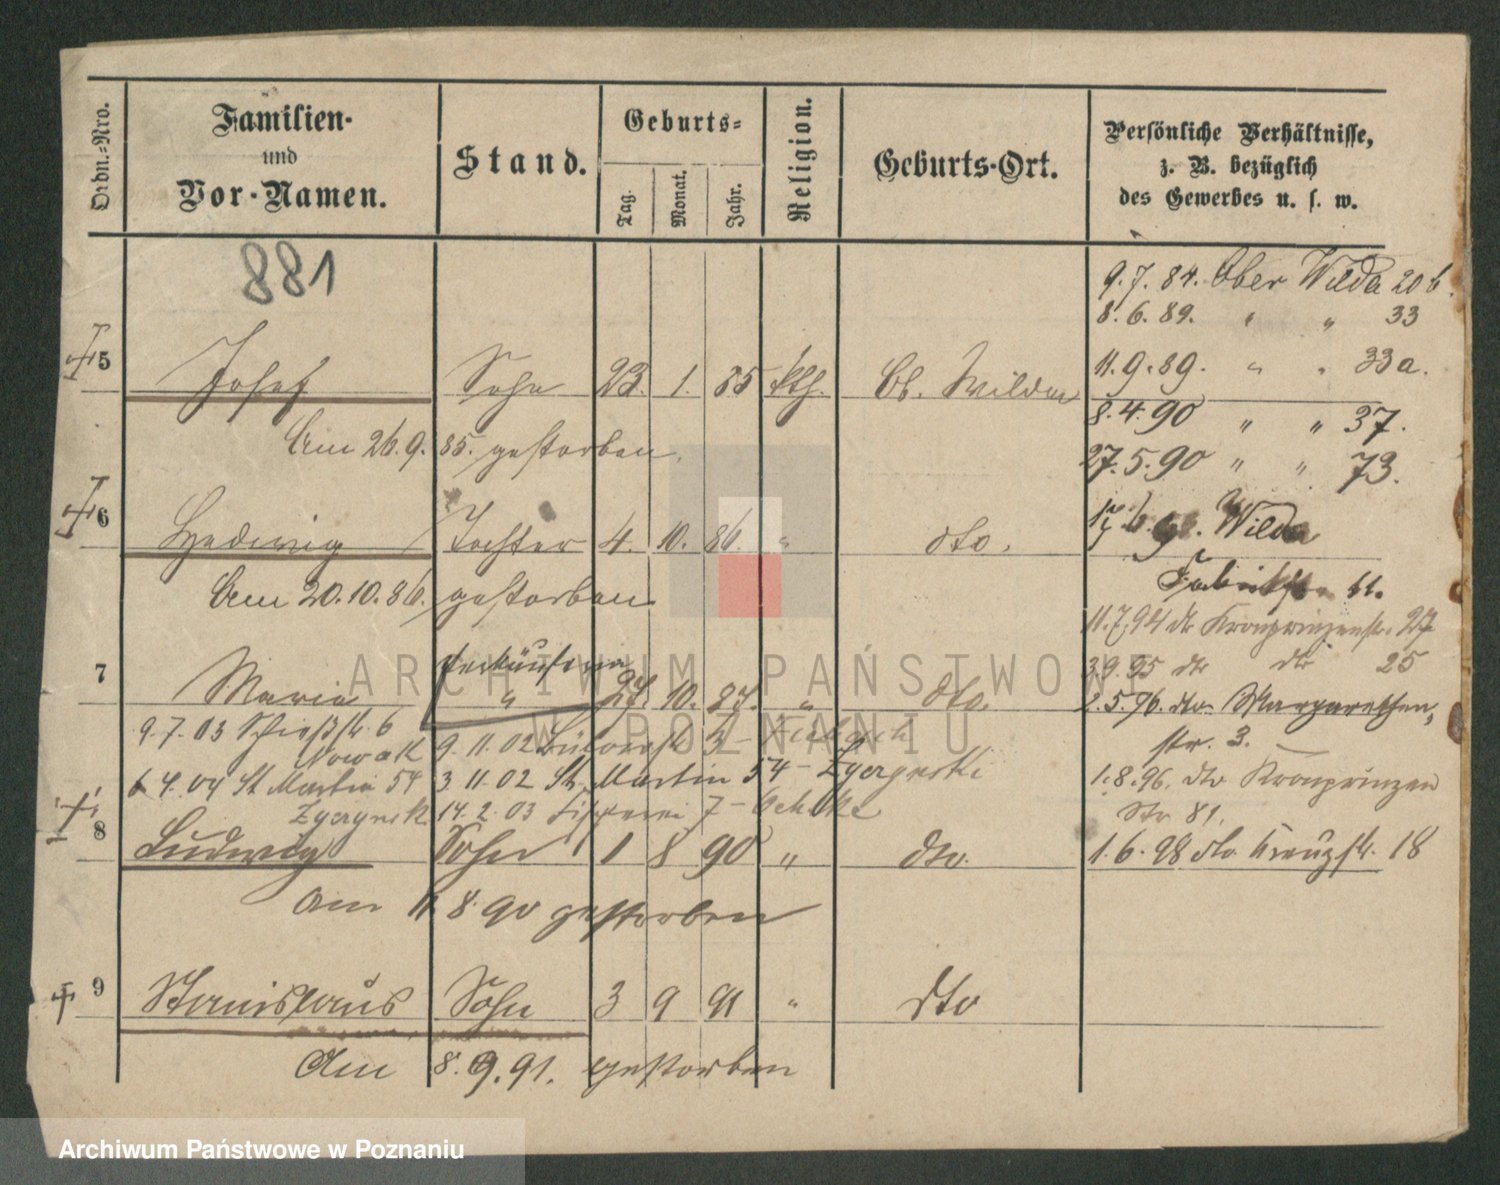 Ordn.-Nro.
Familien-
und
Vor-Namen.
Stand.
Geburts-
Tag.
Monat.
Jahr.
Religion.
Geburts-Ort.
Persönliche Verhältnisse,
z. B. bezüglich
des Gewerbes u. s. w.
881
9.7.84. Ober Wilda 20b.
8.6.89. " " 33
5 Josef Sohn 23. 1. 85 kth. Ob. Wilda
11.9.89. " " 33a.
8.4.90 " " 37.
Am 26.9.85. gestorben.
27.5.90 " " 73.
6 Hedwig Tochter 4. 10. 86. " dto.
Wilda
Am 20.10.86. gestorben
Fabrikstr.
11.7.94 dto Kronprinzenstr. 27
7 Maria Verkäuferin " 10. 87. " dto.
3.9.95 dto dto 25
2.5.96. dto. Margarethen-
str. 3.
9.7.03 Schießstr. 6
Nowak
9.11.02 3
6 4.04 St Martin 54
3 11.02 St. Martin 54 -
14.2.03 7 -
1.8.96. dto Kronprinzen
Str 81.
8 Ludwig Sohn 1 8 90 " dto.
1.6.98 dto Kreuzstr. 18
am 11 8 90 gestorben
9 Stanislaus Sohn 3 9 91 " dto
Am 8. 9. 91. gestorben
ARCHIWUM PAŃSTWOWE
W POZNANIU
Archiwum Państwowe w Poznaniu